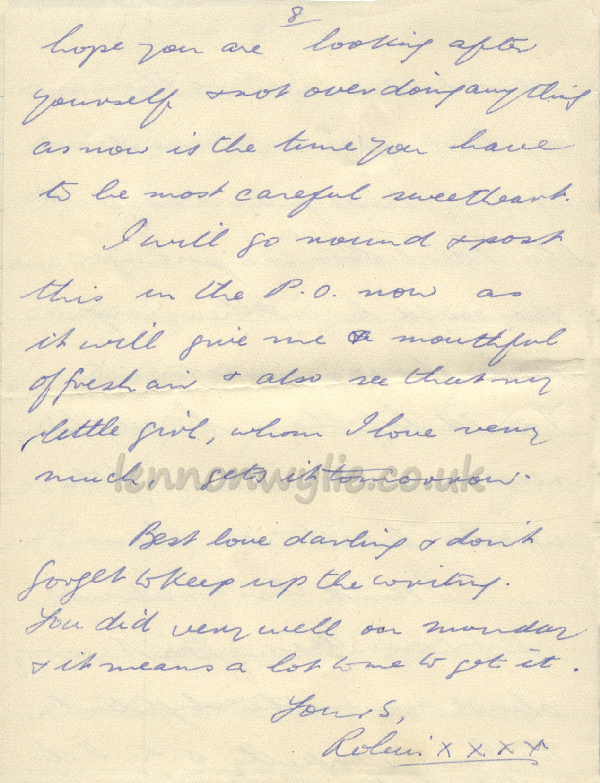 8
hope you are looking after
yourself & not over doing anything
as now is the time you have
to be most careful sweetheart.
I will go round & post
this in the P.O. now as
it will give me a mouthful
of fresh air & also see that my
little girl, whom I love very
much, gets it tomorrow.
lennonwylie.co.uk
Best love darling & don't
forget to keep up the writing.
You did very well on monday
& it means a lot to me to get it.
Yours,
Robin x x x x